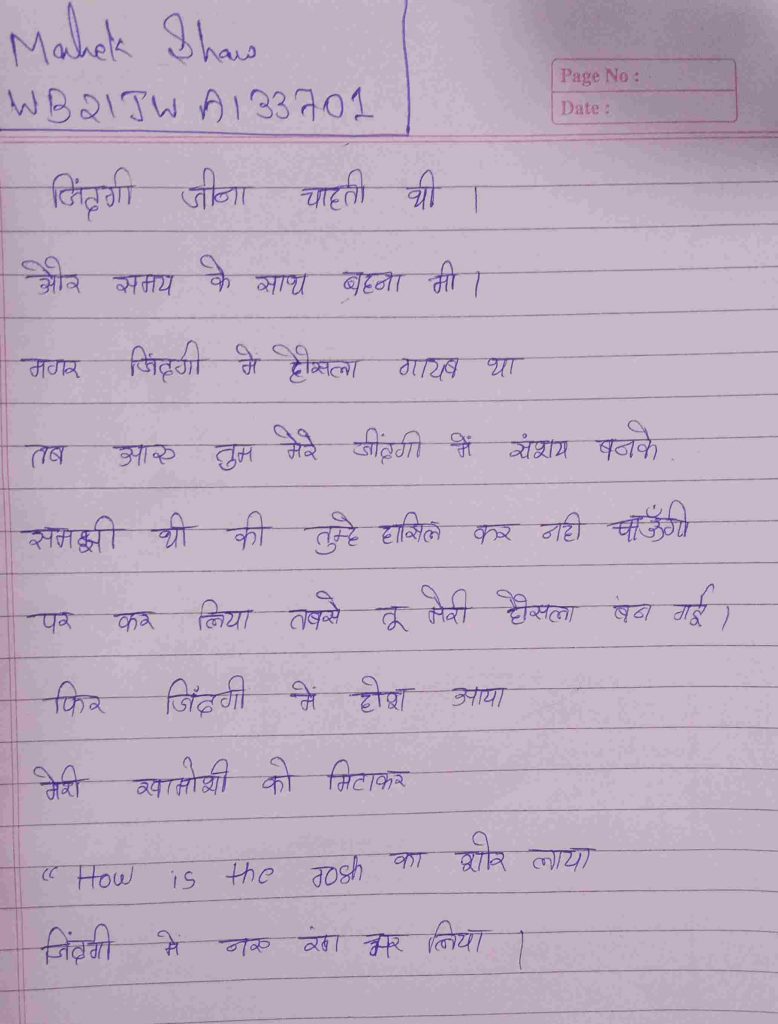 Mahek Shaw
WB21JWA133701
Page No :
Date :
जिंदगी जीना चाहती थी |
और समय के साथ बहना भी |
मगर जिंदगी मे हौसला गायब था
तब आए तुम मेरे जींदगी में संशय बनके
समझी थी की तुम्हे हासिल कर नही पाऊँगी
पर कर लिया तबसे तू मेरी हौसला बन गई |
फिर जिंदगी में होश आया
मेरी खामोशी को मिटाकर
“ How is the Josh का शोर लाया
जिंदगी मे नए रंग भर लिया |